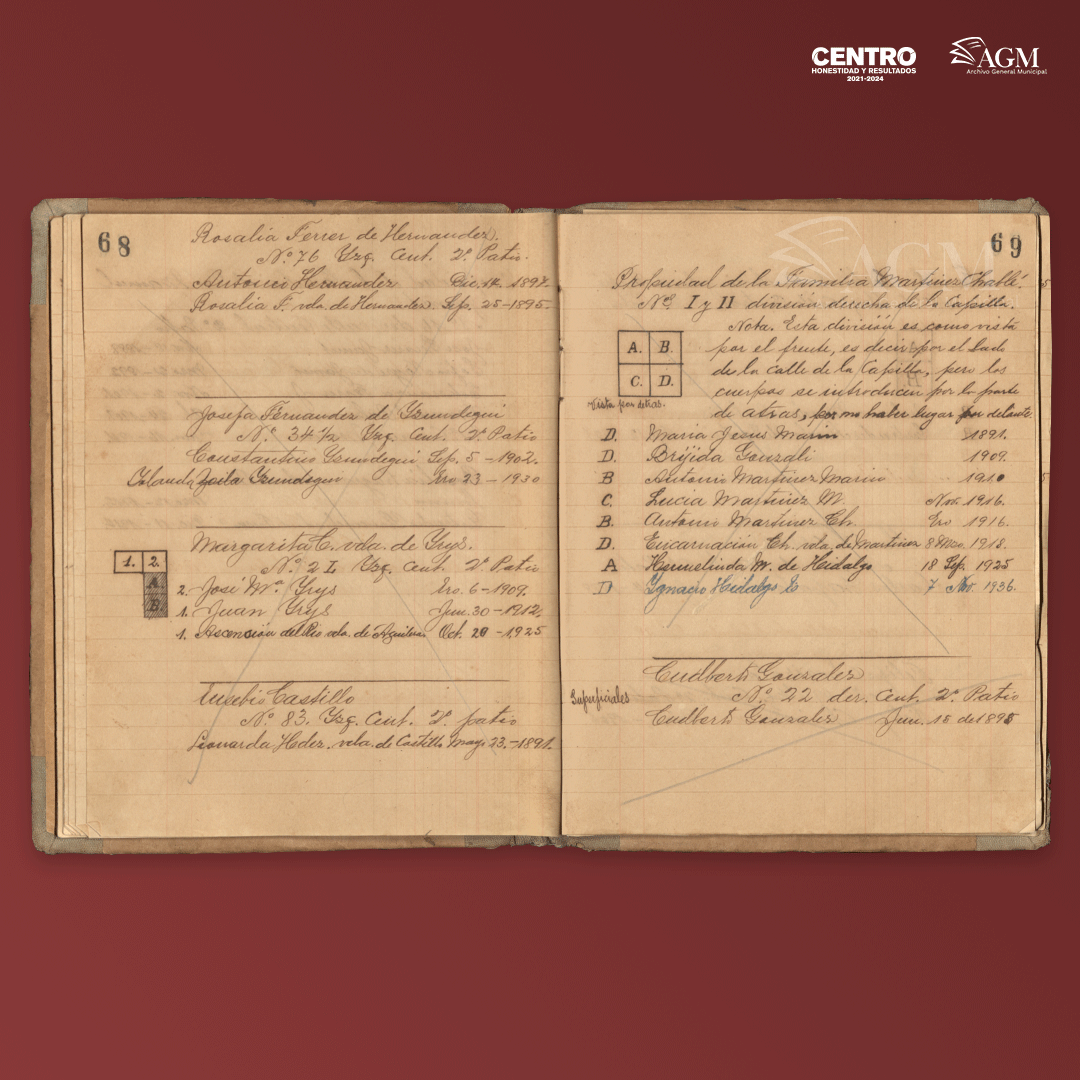 CENTRO
HONESTIDAD Y RESULTADOS
2021-2024
AGM
Archivo General Municipal
68
Rosalia Ferrer de Hernandez.
Nº 76 Yzq. Cent. 2º Patio.
Antonio Hernandez Dic. 14. 1897.
Rosalia F. vda. de Hernandez Sep. 25-1895.
Josefa Fernandez de Yzundegui
Nº 34½ Yzq. Cent. 2º Patio
Constantino Yzundegui Sep. 5-1902.
Zoila Yzundegui Ero 23-1930
Margarita C. vda. de Grys.
Nº 2 I. Yzq. Cent. 2º Patio
1. 2.
A
B
2. José Mª Grys Ero. 6-1909.
1. Juan Grys Jun. 30-1912.
1. Ascención del Rio vda. de Aguilera Oct. 20-1925
Eusebio Castillo
Nº 83. Yzq. Cent. 2º patio
Leonarda Hdez. vda. de Castillo Mayo 23.-1891.
69
AGM
Propiedad de la Familia Martinez Chablé.
Nos. I y II division derecha de la Capilla.
Nota. Esta división es como vista
por el frente, es decir por el lado
de la calle de la Capilla, pero los
cuerpos se introducen por la parte
de atras, por no haber lugar por delante
A. B.
C. D.
Vista por detras.
D. Maria Jesus Marin 1891.
D. Brijida Gonzali 1909.
B Antonio Martinez Marin 1910
C. Lucia Martinez M. Nov. 1916.
B. Antonio Martinez Ch. Ero 1916.
D. Encarnación Ch. vda. de Martinez 8 Mzo. 1918.
A Hermelinda M. de Hidalgo 18 Sep. 1925
D Ygnacio Hidalgo 7 Nov. 1936.
Cudberto Gonzalez
Superficiales Nº 22 der. Cent. 2º Patio
Cudberto Gonzalez Jun. 18 de 1898